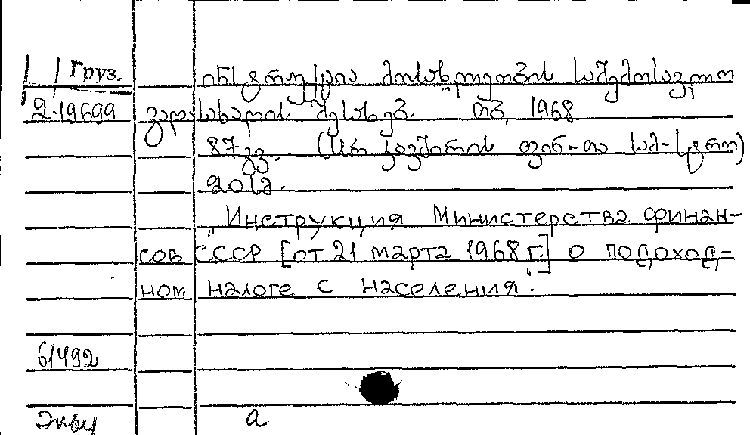 Груз. ინსტრუქცია მოსახლეობის საშემოსავლო
2-19699 გადასახადის შესახებ. თბ, 1968
87 გვ. (სსრ კავშირის ფინ-თა სამ-სტრო)
Инструкция Министерства финан-
сов СССР [от 21 марта 1968 г.] о подоход-
ном налоге с населения.
6/492
а